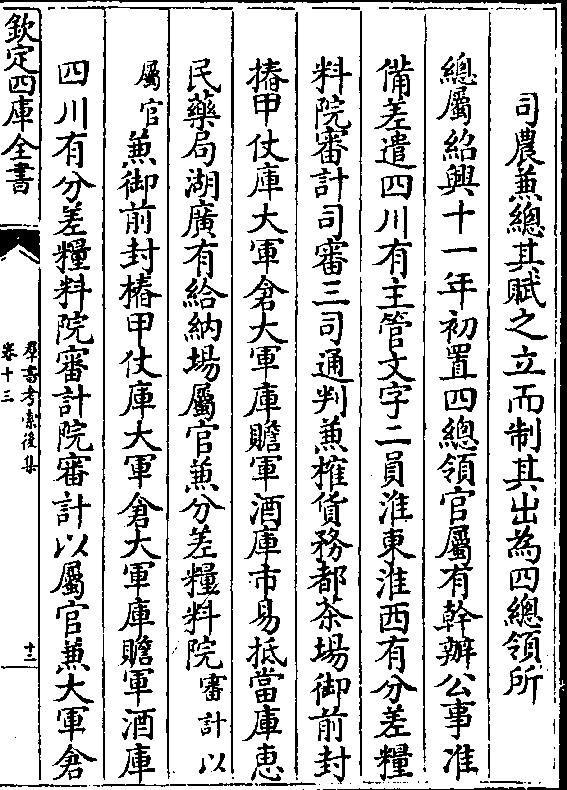 司農兼總其賦之立而制其出為四總領所
總屬紹興十一年初置四總領官屬有幹辦公事准
備差遣四川有主管文字二員淮東淮西有分差糧
料院審計司審三司通判兼榷貨務都茶場御前封
樁甲仗庫大軍倉大軍庫贍軍酒庫市易抵當庫惠
民藥局湖廣有給納場屬官兼分差糧料院審計以
屬官兼御前封樁甲仗庫大軍倉大軍庫贍軍酒庫
四川有分差糧料院審計院審計以屬官兼大軍倉
欽定四庫全書
羣書考索後集
卷十三
十二